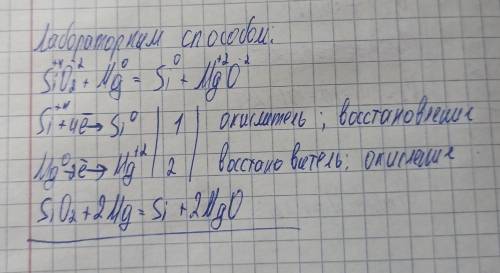 Лабораторним способом:
Si⁺⁴O₂⁻² + Mg⁰ = Si⁰ + Mg⁺²O⁻²
Si⁺⁴+4e̅→Si⁰ | 1 | окислитель; восстановление
Mg⁰-2e̅→Mg⁺² | 2 | восстановитель; окисление
SiO₂+2Mg=Si+2MgO